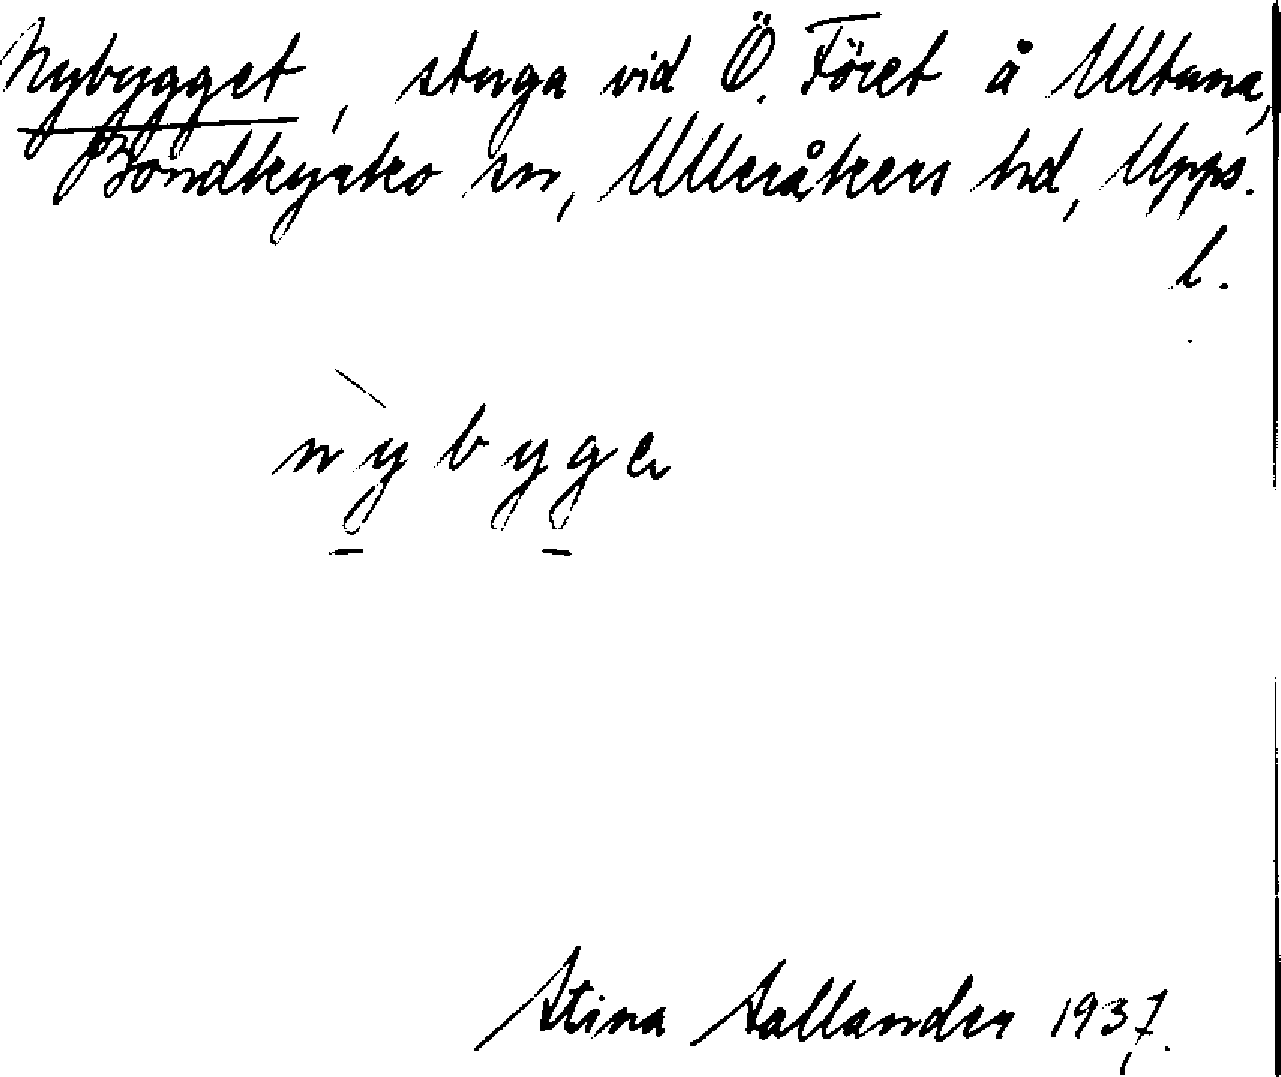 Nybygget, stuga vid Ö. Föret å Ultuna,
Bondkyrko sn, Ulleråkers hd, Upps.
l.
nybyge
Stina Sallander 1937.